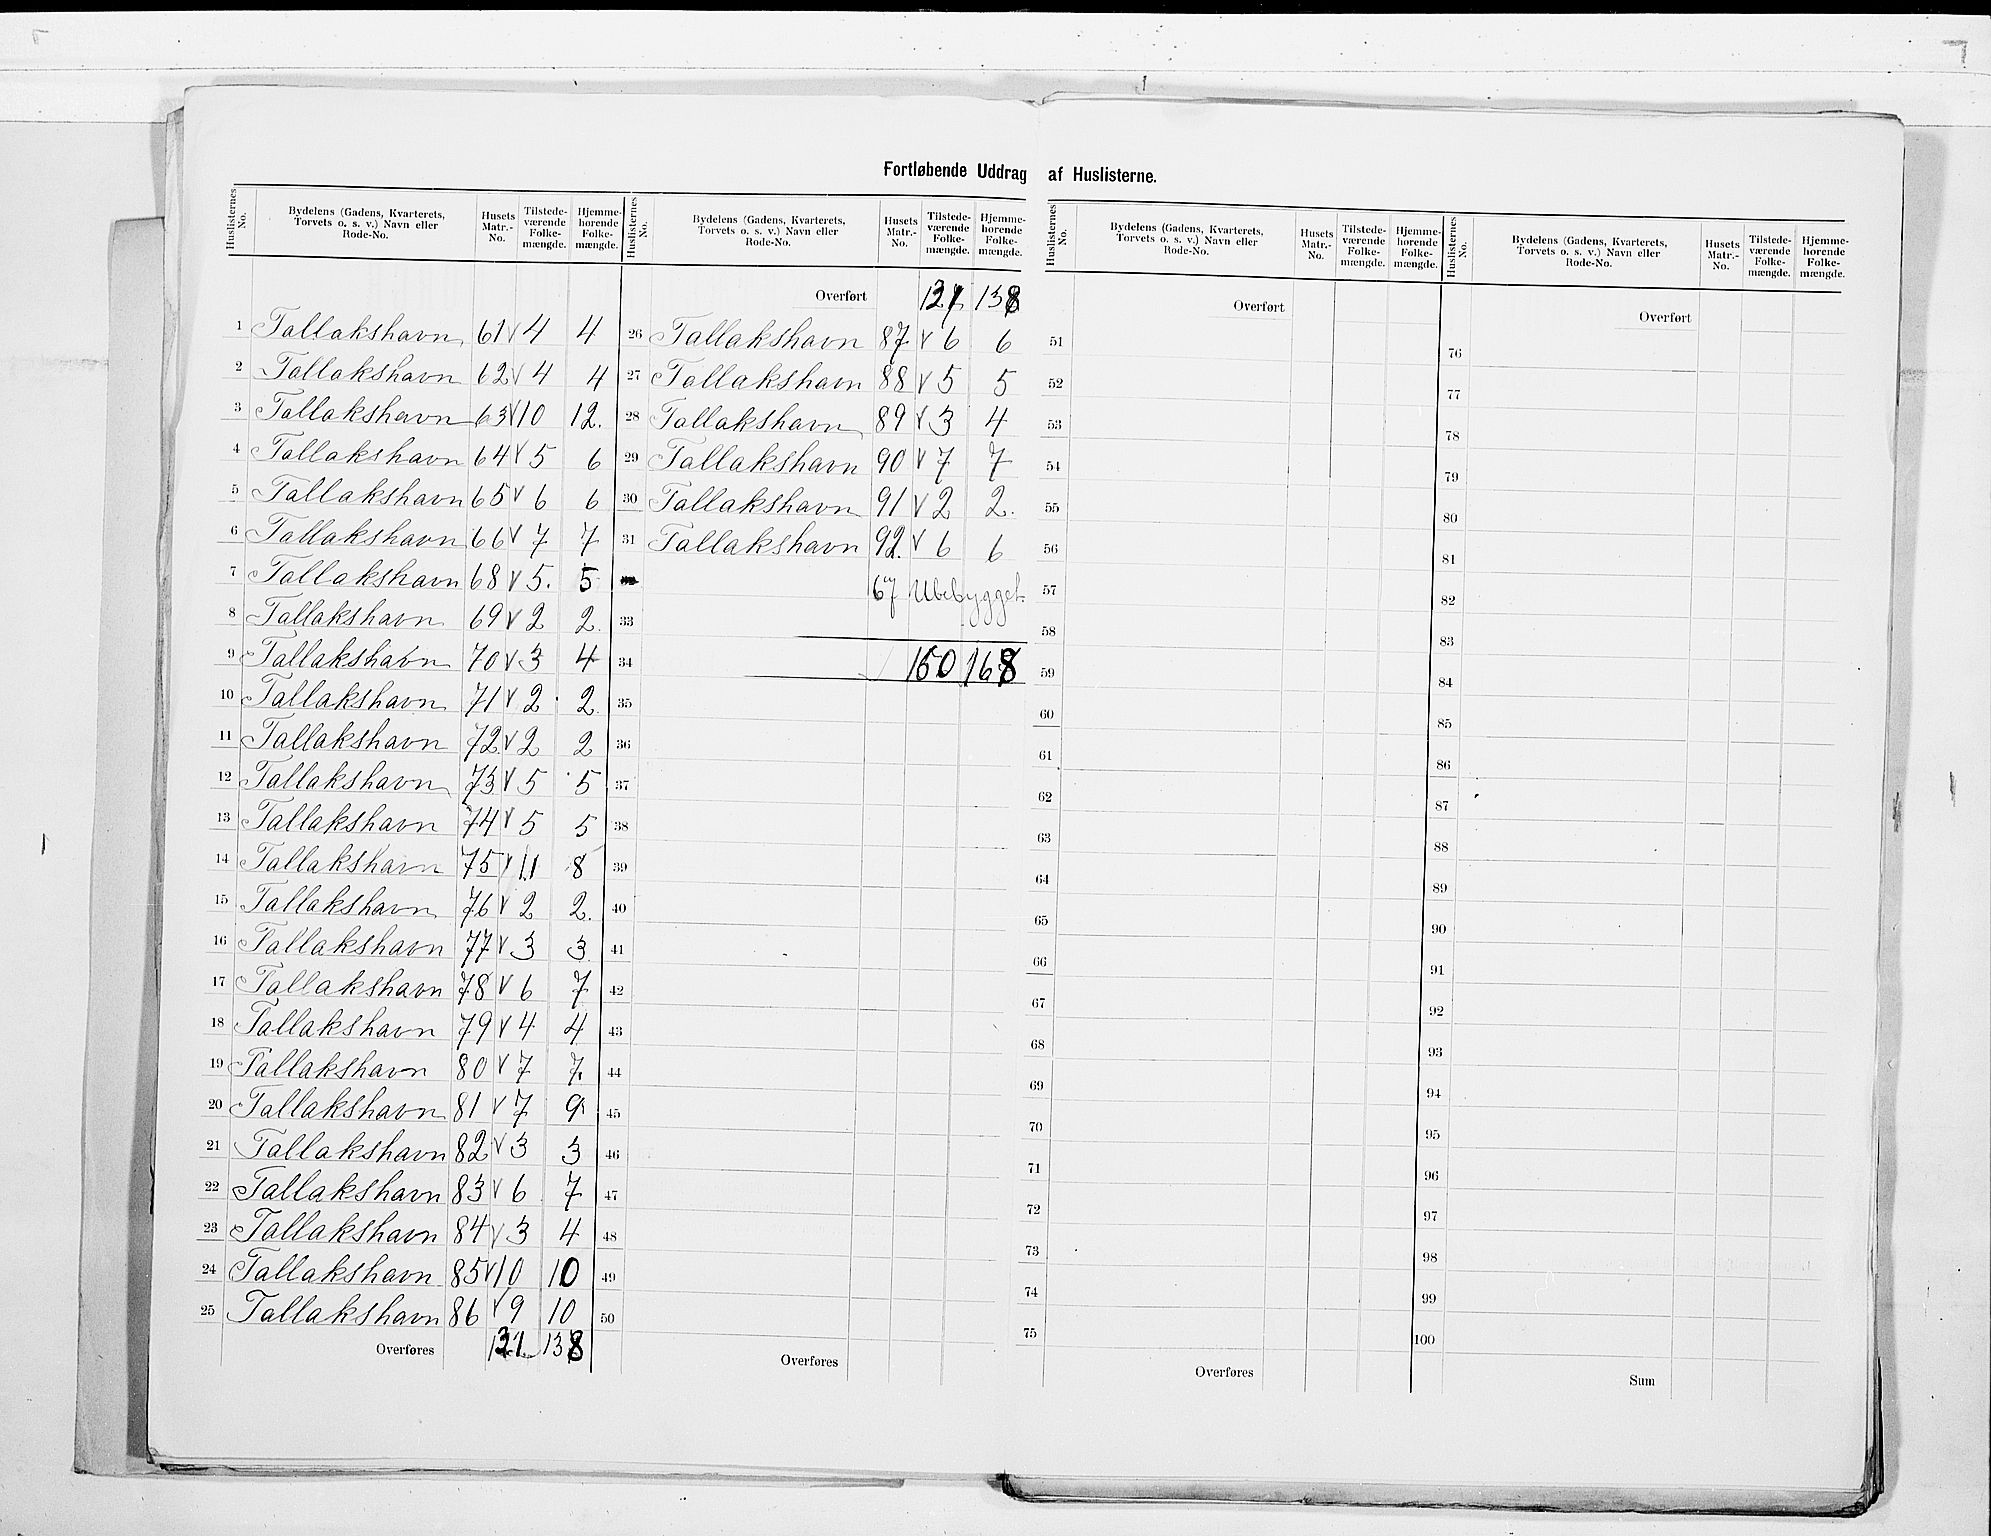 Fortløbende Uddrag af Huslisterne.
Huslisternes No. Bydelens (Gadens, Kvarterets, Torvets o. s. v.) Navn eller Rode-No. Husets Matr.-No. Tilstedeværende Folkemængde. Hjemmehorende Folkemængde.
1 Tallakshavn 61 v 4 4
2 Tallakshavn 62 v 4 4
3 Tallakshavn 63 v 10 12.
4 Tallakshavn 64 v 5 6
5 Tallakshavn 65 v 6 6
6 Tallakshavn 66 v 7 7
7 Tallakshavn 68 v 5. 5
8 Tallakshavn 69 v 2 2.
9 Tallakshavn 70 v 3 4
10 Tallakshavn 71 v 2 2
11 Tallakshavn 72 v 2 2
12 Tallakshavn 73 v 5 5
13 Tallakshavn 74 v 5 5
14 Tallakshavn 75 v 11 8
15 Tallakshavn 76 v 2 2.
16 Tallakshavn 77 v 3 3
17 Tallakshavn 78 v 6 7
18 Tallakshavn 79 v 4 4
19 Tallakshavn 80 v 7 7.
20 Tallakshavn 81 v 7 9
21 Tallakshavn 82 v 3 3
22 Tallakshavn 83 v 6 7
23 Tallakshavn 84 v 3 4
24 Tallakshavn 85 v 10 10
25 Tallakshavn 86 v 9 10
Overføres 131 138
Huslisternes No. Bydelens (Gadens, Kvarterets, Torvets o. s. v.) Navn eller Rode-No. Husets Matr.-No. Tilstedeværende Folkemængde. Hjemmehorende Folkemængde.
Overført 131 138
26 Tallakshavn 87 v 6 6
27 Tallakshavn 88 v 5 5
28 Tallakshavn 89 v 3 4
29 Tallakshavn 90 v 7 7
30 Tallakshavn 91 v 2 2.
31 Tallakshavn 92. v 6 6
67 Ubebygget.
33
34 160 168
35
36
37
38
39
40
41
42
43
44
45
46
47
48
49
50
Overføres
Huslisternes No. Bydelens (Gadens, Kvarterets, Torvets o. s. v.) Navn eller Rode-No. Husets Matr.-No. Tilstedeværende Folkemængde. Hjemmehorende Folkemængde.
Overført
51
52
53
54
55
56
57
58
59
60
61
62
63
64
65
66
67
68
69
70
71
72
73
74
75
Overføres
Huslisternes No. Bydelens (Gadens, Kvarterets, Torvets o. s. v.) Navn eller Rode-No. Husets Matr.-No. Tilstedeværende Folkemængde. Hjemmehorende Folkemængde.
Overført
76
77
78
79
80
81
82
83
84
85
86
87
88
89
90
91
92
93
94
95
96
97
98
99
100
Sum